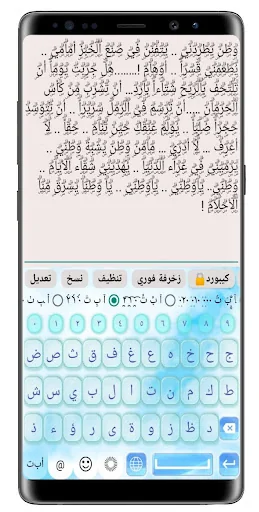 وَطَنٌ يَطْرُدُنِيْ .. يَتَفَنَّنُ فِيْ صُنْعِ الْخُبْزِ أَمَامِيْ ..
يُطْعِمُنِيْ قَسْرَاً .. أَوْهَامَ !.......هَلْ جَرَّبْتَ يَوْمَاً أَنْ
تَلْتَحِفَ بِالرِّيْحِ شِتَاءاً بَارِدَ.. أَنْ تَشْرَبَ مِنْ كَأْسِ
الْحِرْمَانِ ....أَنْ تَرْسُمَ فِيْ الرَّمْلِ سَرِيْرَاً .. أَنْ تَتَوَسَّدَ
حَجَرَاً صُلْبَاً .. يُؤْلِمُ عُنُقَكَ حِيْنَ تَنَامُ .. حَقَّاً .. لَا
أَعْرِفُ ... لَا أَدْرِيْ ... مَامِنْ وَطَنٍ يُشْبِهُ وَطَنِيْ ..
يَرْمِيْنِيْ فِيْ عَرَاءِ الْدُّنْيَا .. يُهْدِيْنِيْ شَقَاءَ الْأَيَّامِ ..
وَطَنِيْ.. يَاوَطَنِيْ .. يَاوَطَنِيْ .. يَا وَطَنَاً يَسْرِقُ مِنَّا
الْأَحْلَامَ !
كيبورد زخرفة فوري تنظيف نسخ تعديل
٠ ١ ٢ ٣ ٤ ٥ ٦ ٧ ٨ ٩
ج ح خ ه ع غ ف ق ث ص ض
ط ك م ن ت ا ل ب ي س ش
د ظ ز و ة ى ر ؤ ء ذ
أبت @